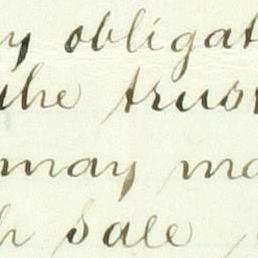 obligat
the trust
may ma
sale